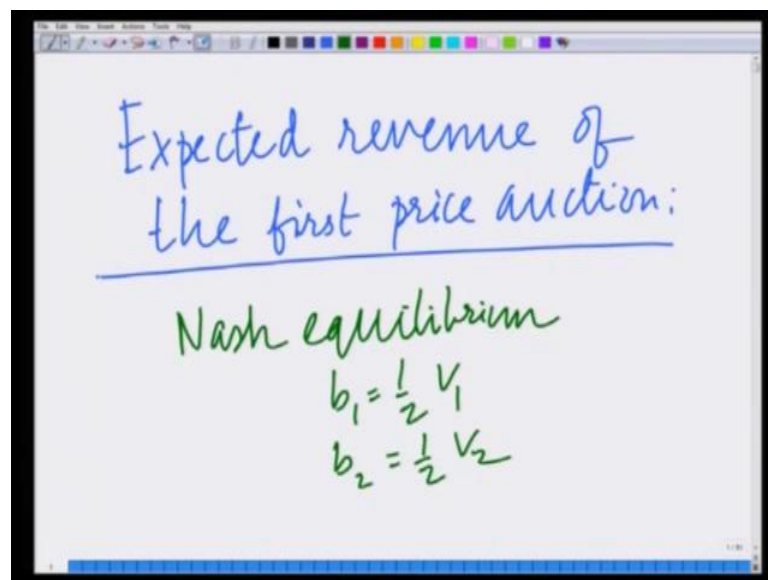 File Edit View Insert Actions Tools Help
Expected revenue of
the first price auction:
Nash equilibrium
b₁ = 1/2 V₁
b₂ = 1/2 V₂